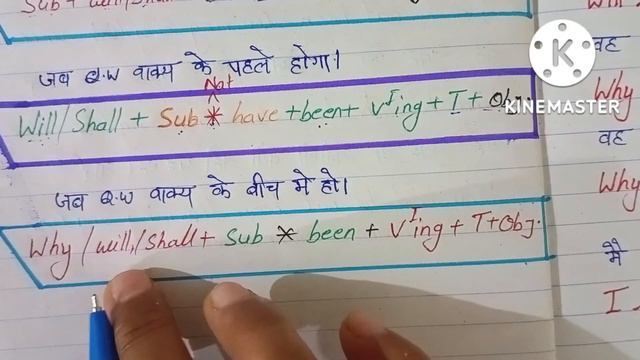 Sub + will/Shall
जब Q.W वाक्य के पहले होगा।
Not
Will/Shall + Sub * have + been + V I ing + I + Obj
KINEMASTER
जब Q.W वाक्य के बीच मे हो।
Why / will/shall + Sub * been + V I ing + T + Obj.
वह
Why
वह
Why
मै
I